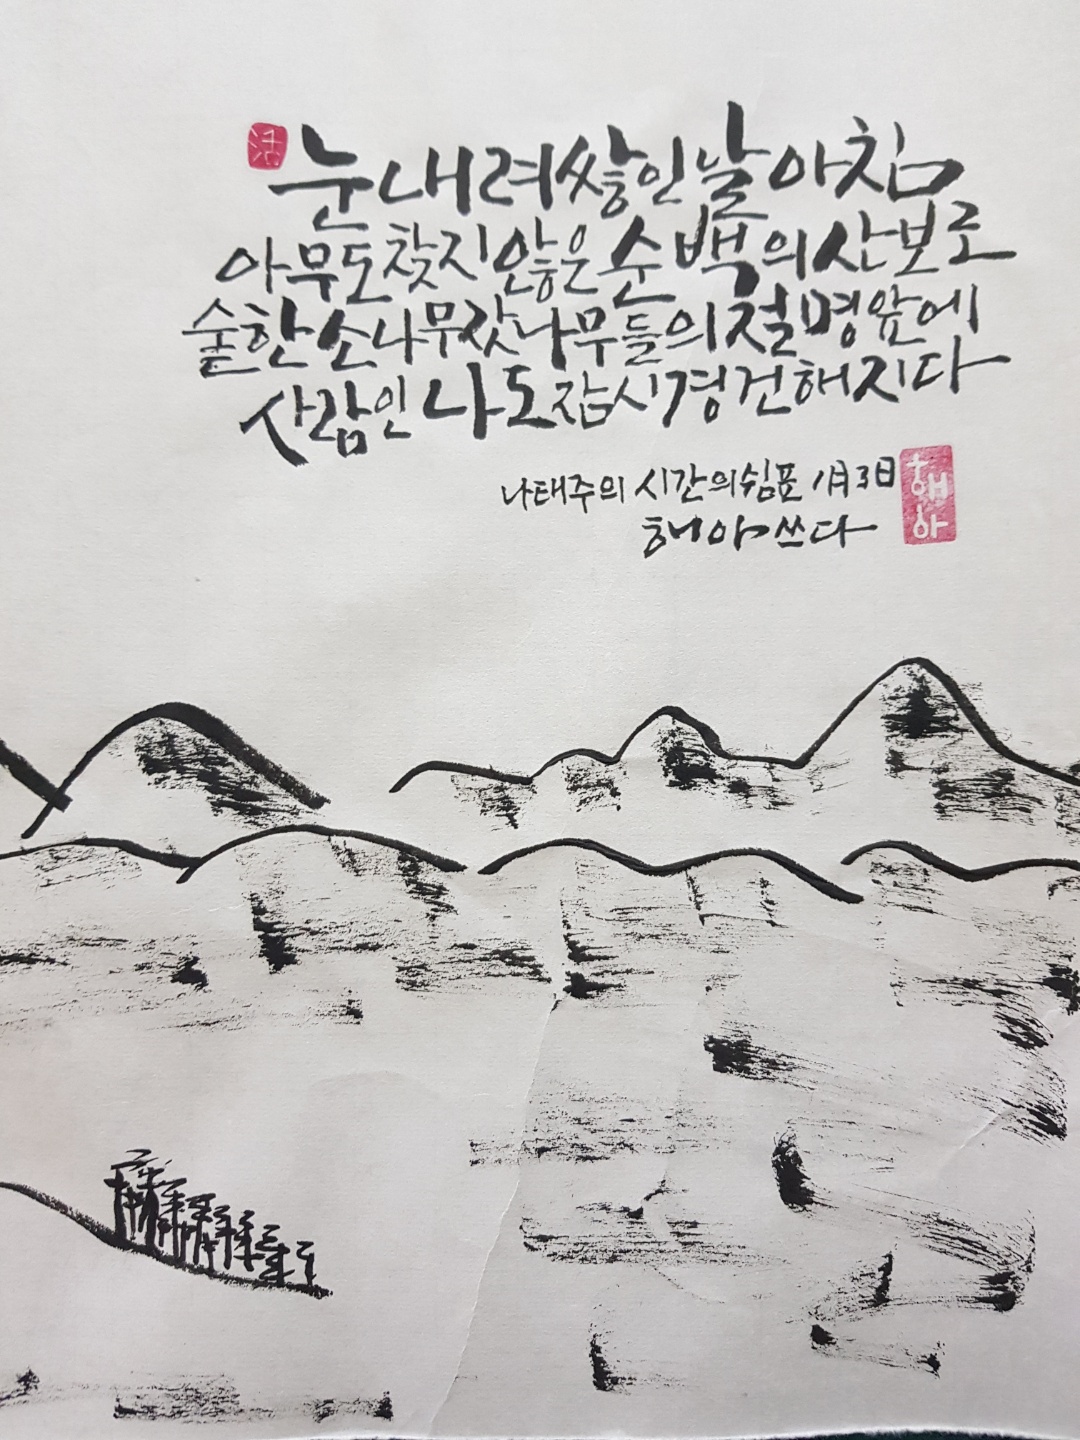 活
눈 내려 쌓인 날 아침
아무도 찾지 않은 순백의 산보로
숱한 소나무 잣나무들의 절명 앞에
사람인 나도 잠시 경건해지다
나태주의 시간의 쉼표 1月 3日
해야 쓰다
해야